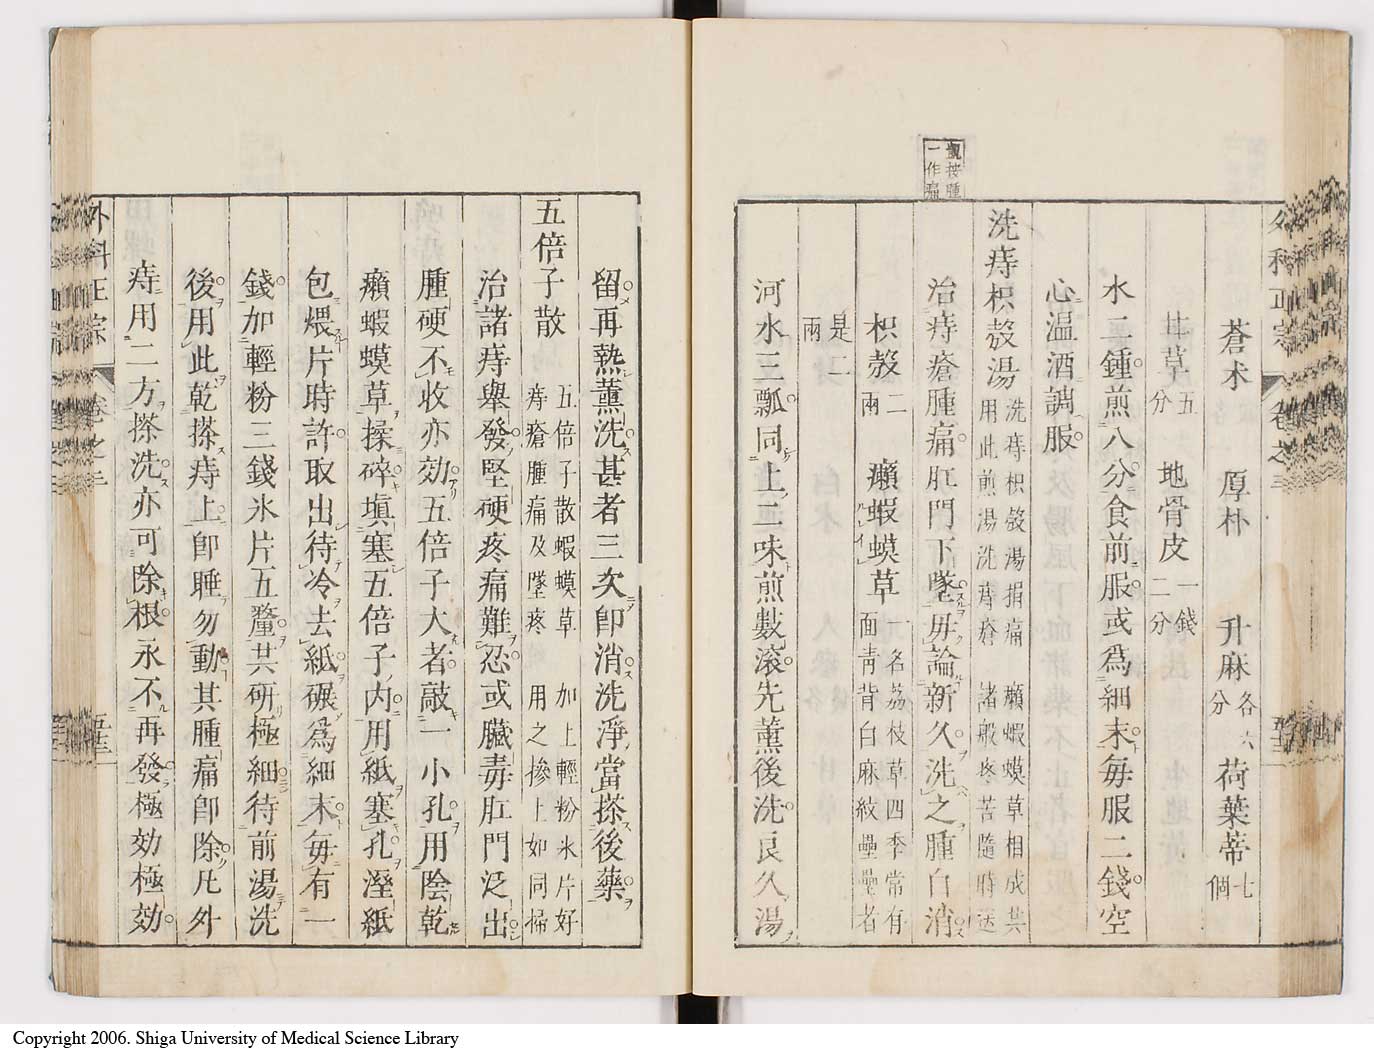 外科正宗 卷之三
蒼术 厚朴 升麻各六分 荷葉蒂七個
甘草五分 地骨皮一錢二分
水二鍾煎八分食前服或爲細末毎服二錢空
心温酒調服
洗痔枳殼湯 洗痔枳殼湯捐痛 癩蝦蟆草相成共
用此煎湯洗痔瘡 諸般疼苦隨時送
治痔瘡腫痛肛門下墜毋論新久洗之腫自消
枳殼二兩 癩蝦蟆草一名荔枝草四季常有
面青背白麻紋壘壘者
是二兩
河水三瓢同上二味煎數滾先薰後洗良久湯
一作痛
留再熱薰洗甚者三次卽消洗淨當搽後藥
五倍子散 五倍子散蝦蟆草 加上輕粉氷片好
痔瘡腫痛及墜疼 用之摻上如同掃
治諸痔舉發堅硬疼痛難忍或臟毒肛門泛出
腫硬不收亦効五倍子大者敲一小孔用陰乾
癩蝦蟆草揉碎填塞五倍子內用紙塞孔溼紙
包煨片時許取出待冷去紙碾爲細末毎有一
錢加輕粉三錢氷片五釐共研極細待前湯洗
後用此乾搽痔上卽睡勿動其腫痛卽除凡外
痔用二方搽洗亦可除根永不再發極効極効
外科正宗 卷之三
Copyright 2006. Shiga University of Medical Science Library